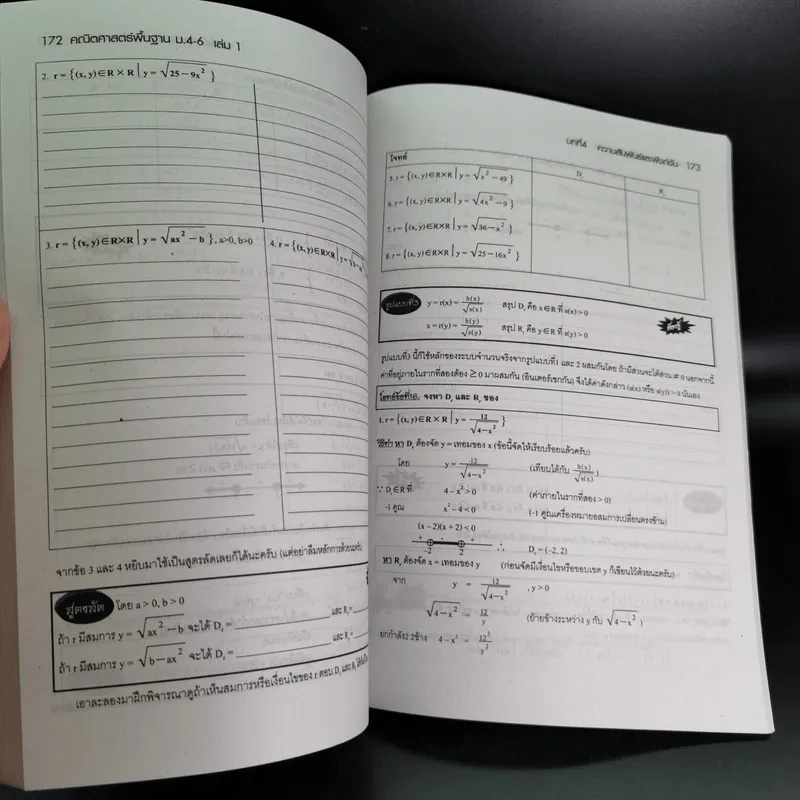 172 คณิตศาสตร์พื้นฐาน ม.4-6 เล่ม 1
2. r = {(x, y)∈R×R | y = √(25−9x²) }
3. r = {(x, y)∈R×R | y = √(ax² − b) }, a>0, b>0
4. r = {(x, y)∈R×R | y = √(b−
จากข้อ 3 และ 4 หยิบมาใช้เป็นสูตรลัดเลยก็ได้นะครับ (แต่อย่าลืมหลักการด้วยนะครับ)
สูตรลัด โดย a > 0, b > 0
ถ้า r มีสมการ y = √(ax² − b) จะได้ Dᵣ = และ Rᵣ =
ถ้า r มีสมการ y = √(b − ax²) จะได้ Dᵣ = และ Rᵣ =
เอาละลองมาฝึกพิจารณาดูถ้าเห็นสมการหรือเงื่อนไขของ r ตอบ Dᵣ และ Rᵣ
บทที่4 ความสัมพันธ์และฟังก์ชัน 173
โจทย์ Dᵣ Rᵣ
5. r = {(x, y)∈R×R | y = √(x² − 49) }
6. r = {(x, y)∈R×R | y = √(4x² − 9) }
7. r = {(x, y)∈R×R | y = √(36 − x²) }
8. r = {(x, y)∈R×R | y = √(25 − 16x²) }
รูปแบบที่3 y = r(x) = h(x)/√s(x) สรุป Dᵣ คือ x∈R ที่ s(x) > 0
x = r(y) = h(y)/√s(y) สรุป Rᵣ คือ y∈R ที่ s(y) > 0
รูปแบบที่3 นี้ก็ใช้หลักของระบบจำนวนจริงจากรูปแบบที่1 และ 2 ผสมกันโดย ถ้ามีส่วนจะได้ส่วน ≠ 0 นอกจากนี้
ค่าที่อยู่ภายในรากที่สองต้อง ≥ 0 มาผสมกัน (อินเตอร์เซกกัน) จึงได้ค่าดังกล่าว (s(x) หรือ s(y)) > 0 นั่นเอง
โจทย์ข้อที่16. จงหา Dᵣ และ Rᵣ ของ
1. r = {(x, y)∈R×R | y = 12/√(4−x²) }
วิธีทำ หา Dᵣ ต้องจัด y = เทอมของ x (ข้อนี้จัดให้เรียบร้อยแล้วครับ)
โดย y = 12/√(4−x²) (เทียบได้กับ h(x)/√s(x) )
∵ Dᵣ∈R ที่ 4 − x² > 0 (ค่าภายในรากที่สอง > 0)
-1 คูณ x² − 4 < 0 (-1 คูณเครื่องหมายอสมการเปลี่ยนตรงข้าม)
(x − 2)(x + 2) < 0
+ − +
−2 2 ∴ Dᵣ = (−2, 2)
หา Rᵣ ต้องจัด x = เทอมของ y (ก่อนจัดมีเงื่อนไขหรือขอบเขต y ก็เขียนไว้ด้วยนะครับ)
จาก y = 12/√(4−x²) , y > 0
√(4−x²) = 12/y (ย้ายข้างระหว่าง y กับ √(4−x²) )
ยกกำลัง2 2ข้าง 4 − x² = 12²/y²